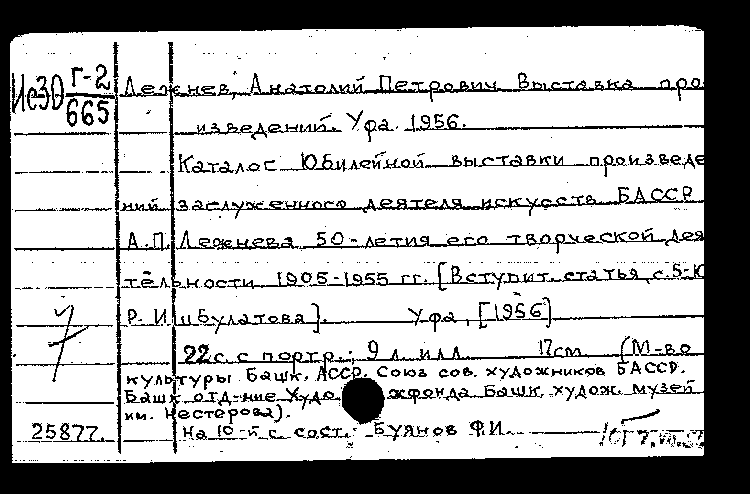 ИсЗО Г-2
665
Лежнев, Анатолий Петрович Выставка про-
изведений. Уфа. 1956.
Каталог Юбилейной выставки произведе
ний заслуженного деятеля искусств БАССР
А.П. Лежнева 50-летия его творческой дея
тельности 1905-1955 гг. [Вступит. статья, с.5-10
Р. Ишбулатова]. Уфа, [1956]
22 с. с портр.; 9 л. илл. 17см (М-во
культуры Башк. АССР. Союз сов. художников БАССР.
Башк отд-ние Худо жфонда Башк. худож. музей
им. Нестерова).
25877. На 10-й с. сост.: Буянов Ф.И.